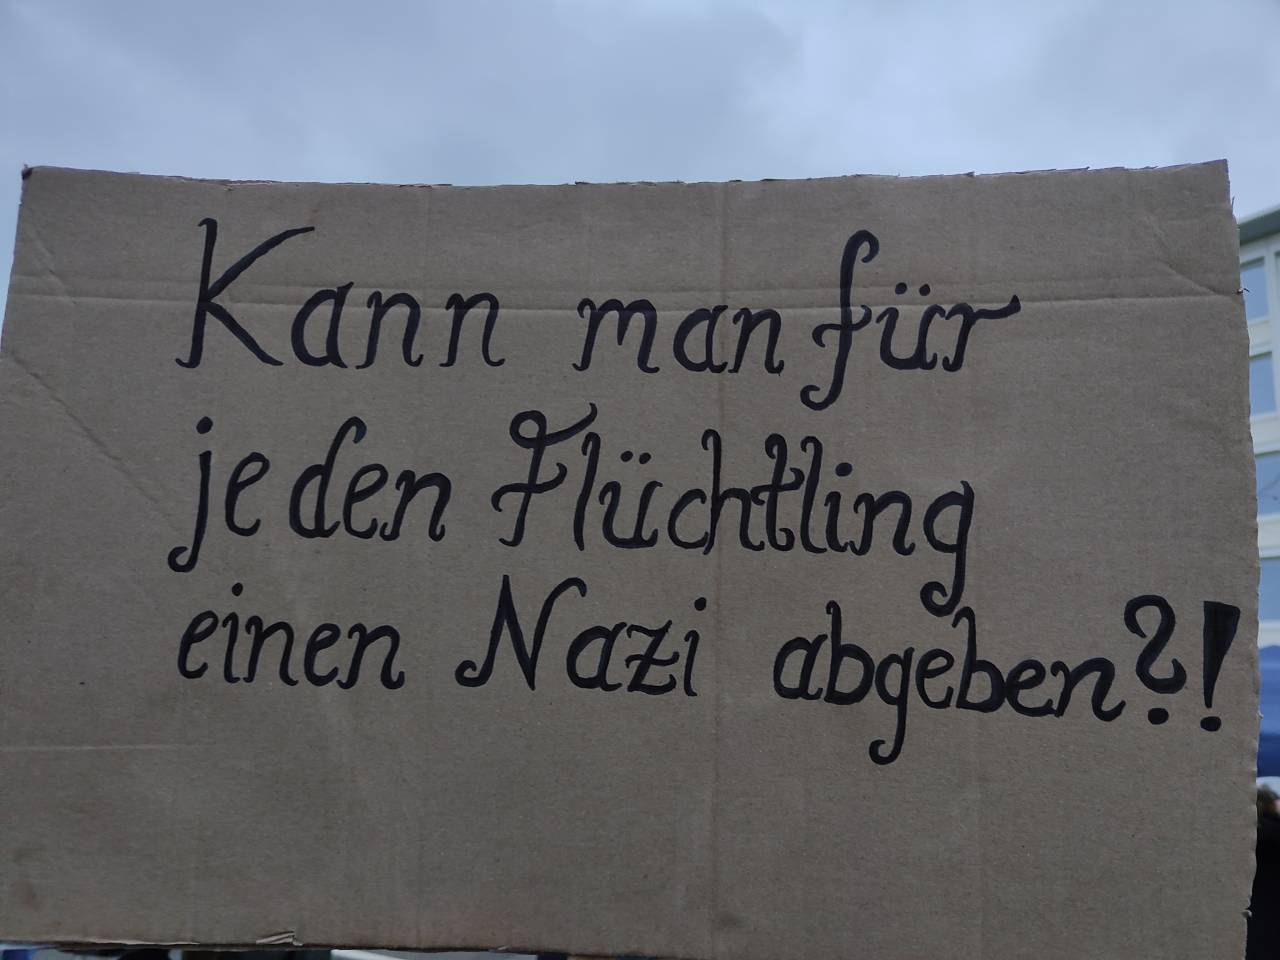 Kann man für
jeden Flüchtling
einen Nazi abgeben?!